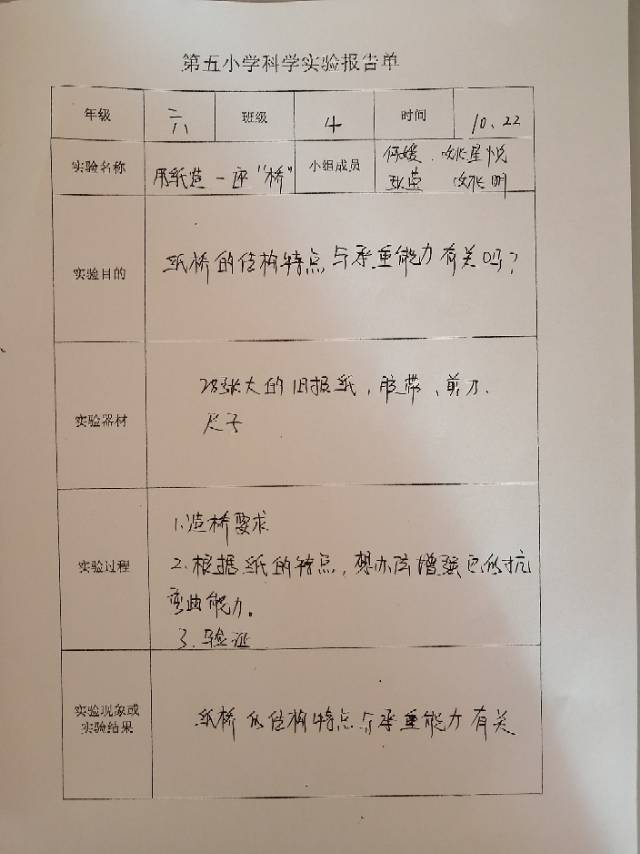 第五小学科学实验报告单
年级 六 班级 4 时间 10、22
实验名称 用纸造一座“桥” 小组成员 何媛、姚星悦
张蓝 姚明
实验目的 纸桥的结构特点与承重能力有关吗？
实验器材 28张大的旧报纸，胶带、剪刀、
尺子
1.造桥要求
实验过程 2.根据纸的特点，想办法增强它的抗
弯曲能力。
3.验证
实验现象或
实验结果 纸桥的结构特点与承重能力有关